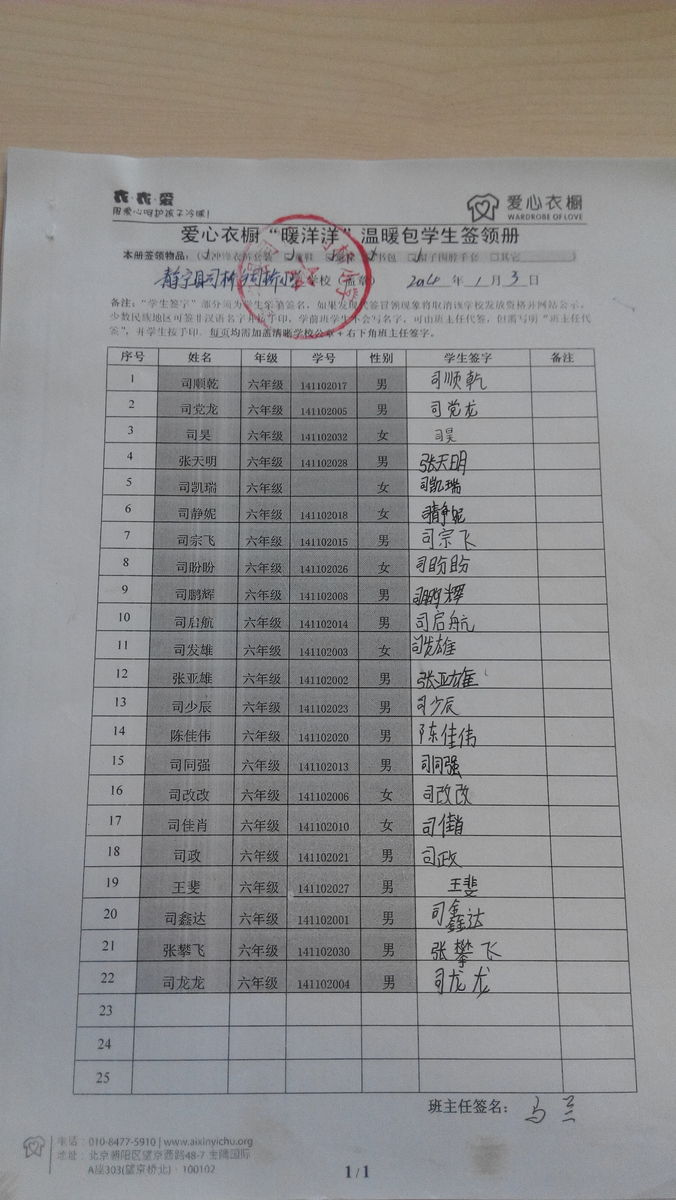 衣·衣·爱
用爱心呵护孩子冷暖!
爱心衣橱
WARDROBE OF LOVE
爱心衣橱“暖洋洋”温暖包学生签领册
本册签领物品:
学校(盖章) 2014 年 1 月 3 日
备注:“学生签字”部分须为学生亲笔签名,如果发现代签冒领现象将取消该学校发放资格并网站公示,
少数民族地区可签非汉语名字并按手印,学前班学生不会写名字,可由班主任代签,但需写明“班主任代
签”,并学生按手印。每页均需加盖清晰学校公章+右下角班主任签字。
序号 姓名 年级 学号 性别 学生签字 备注
1 司顺乾 六年级 141102017 男 司顺乾
2 司党龙 六年级 141102005 男 司党龙
3 司昊 六年级 141102032 女 司昊
4 张天明 六年级 141102028 男 张天明
5 司凯瑞 六年级 女 司凯瑞
6 司静妮 六年级 141102018 女 司静妮
7 司宗飞 六年级 141102015 男 司宗飞
8 司盼盼 六年级 141102026 女 司盼盼
9 司鹏辉 六年级 141102008 男 司鹏辉
10 司启航 六年级 141102014 男 司启航
11 司发雄 六年级 141102003 女 司发雄
12 张亚雄 六年级 141102002 男 张亚雄
13 司少辰 六年级 141102023 男 司少辰
14 陈佳伟 六年级 141102020 男 陈佳伟
15 司同强 六年级 141102013 男 司同强
16 司改改 六年级 141102006 女 司改改
17 司佳肖 六年级 141102010 女 司佳肖
18 司政 六年级 141102021 男 司政
19 王斐 六年级 141102027 男 王斐
20 司鑫达 六年级 141102001 男 司鑫达
21 张攀飞 六年级 141102030 男 张攀飞
22 司龙龙 六年级 141102004 男 司龙龙
23
24
25
班主任签名:
电话:010-8477-5910 | www.aixinyichu.org
地址:北京朝阳区望京西路48-7 金隅国际
A座303(望京桥北) · 100102
1 / 1